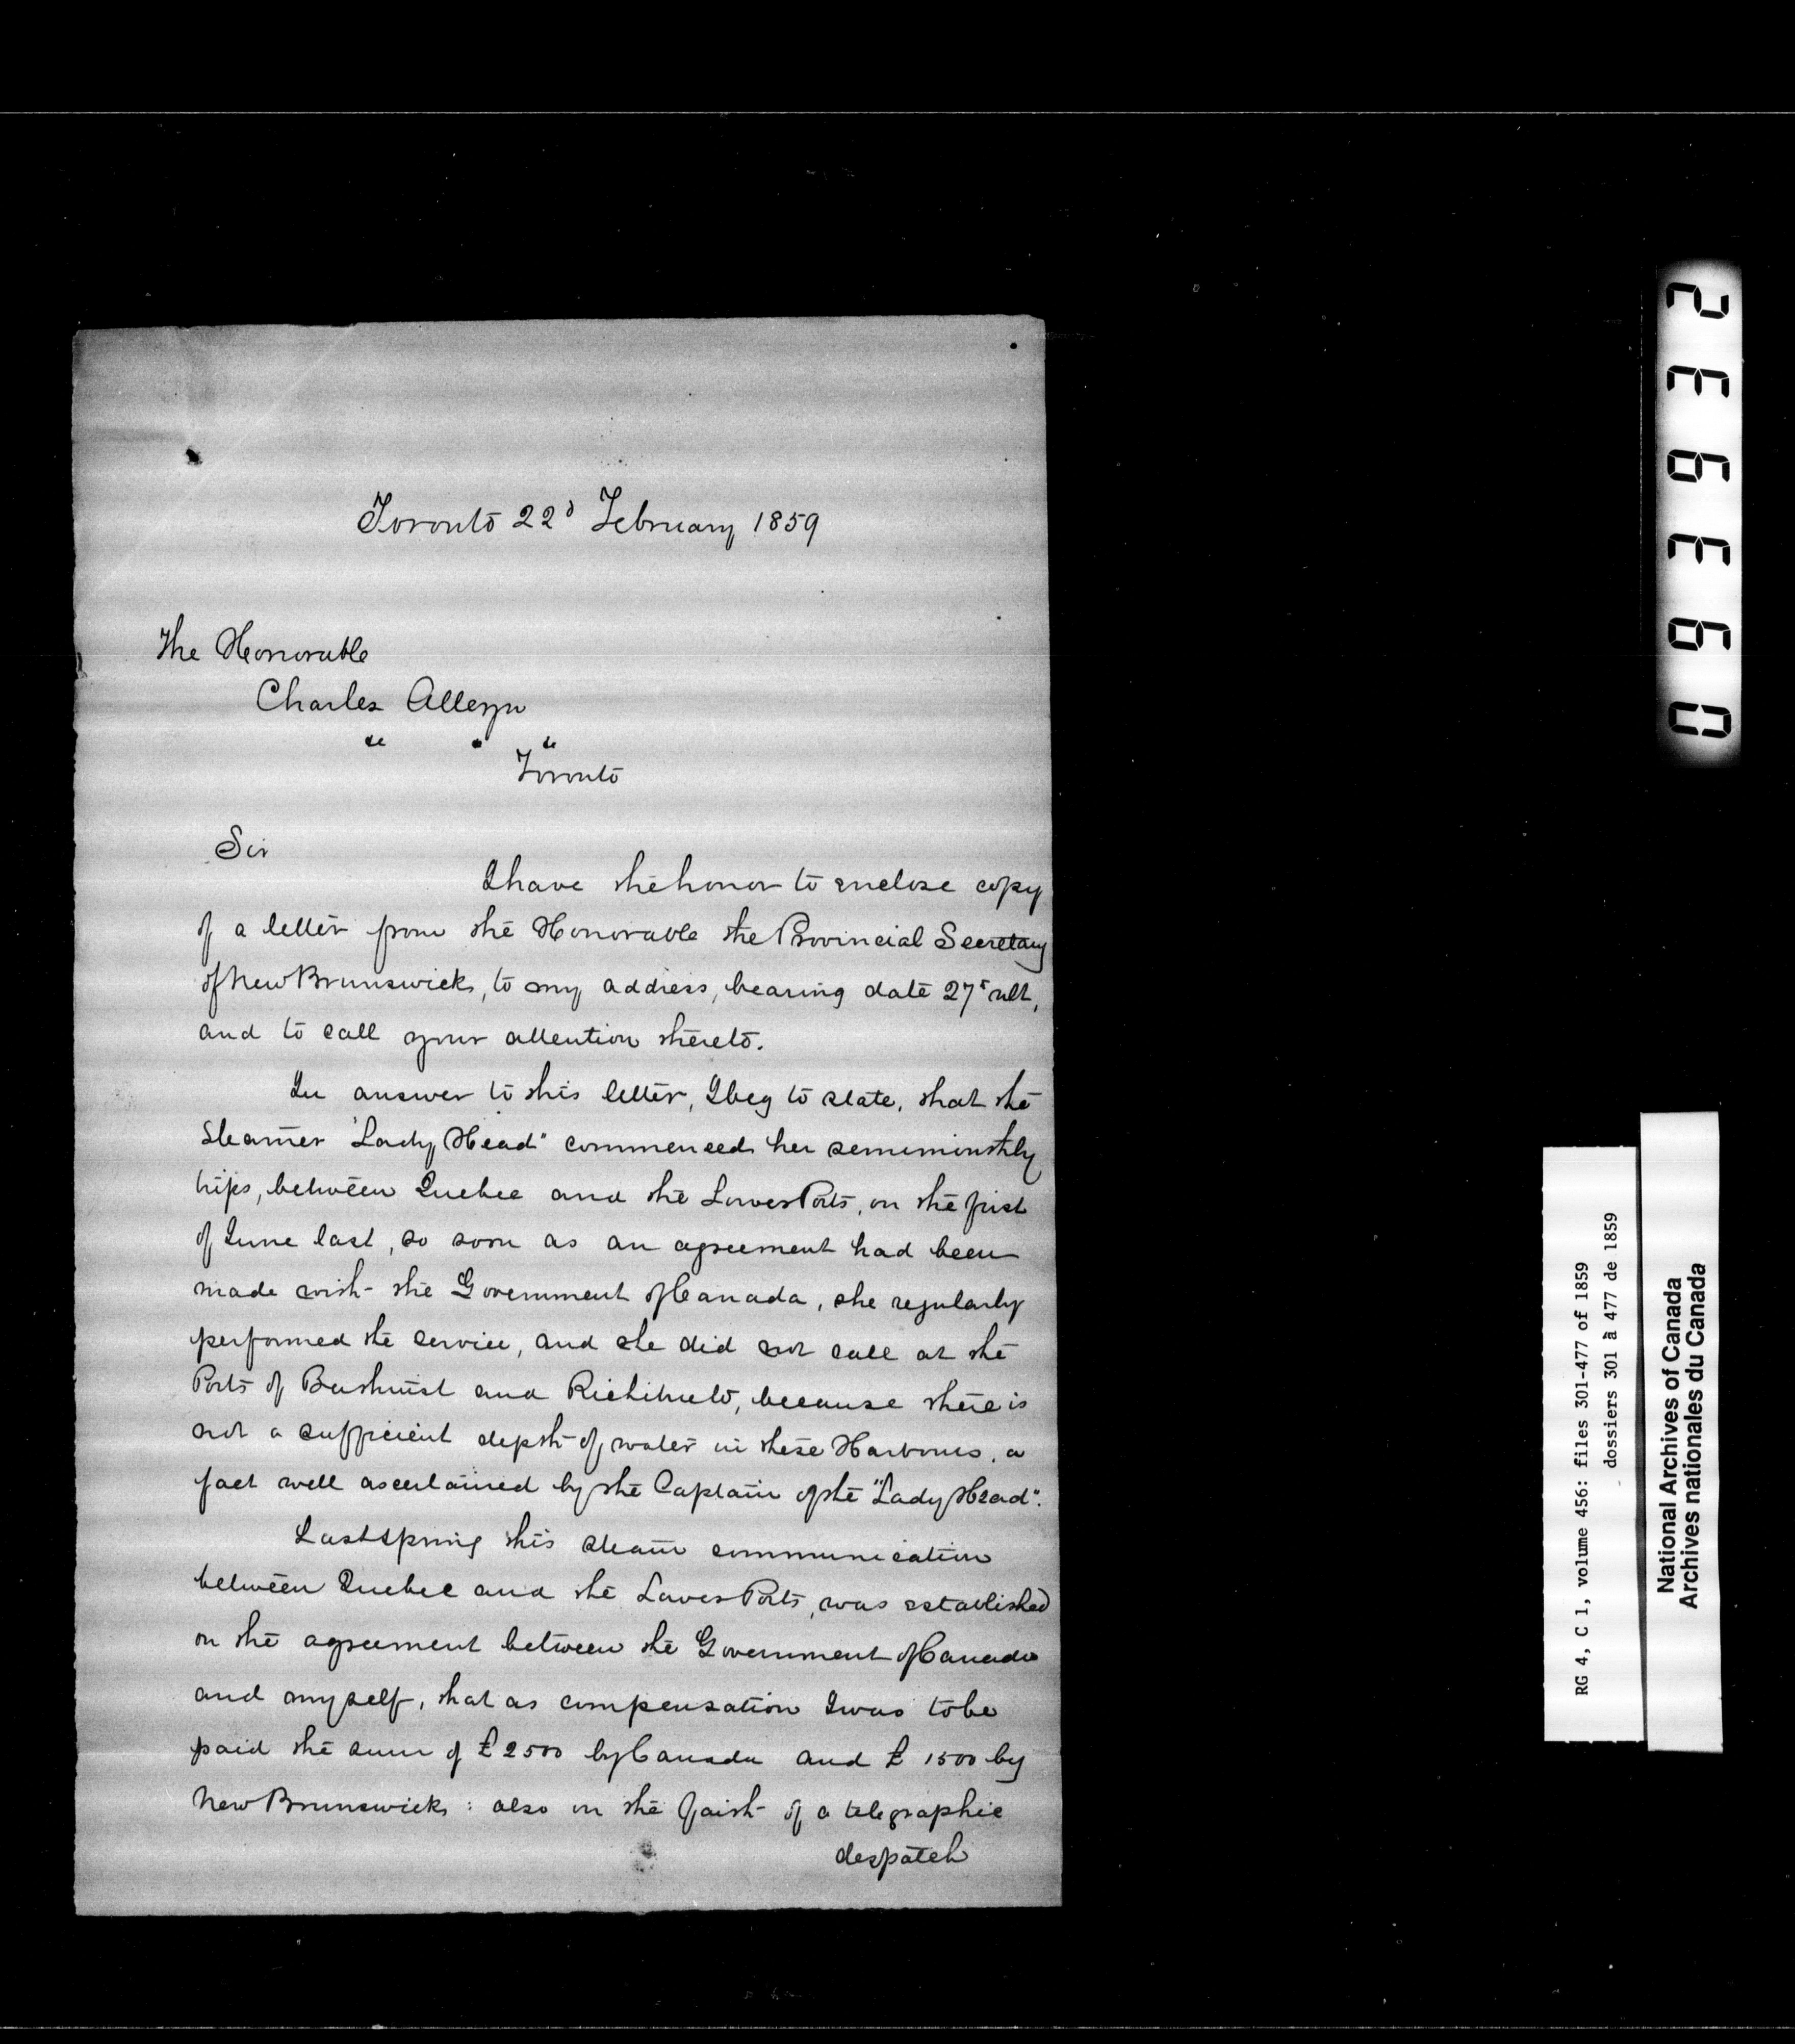 Toronto 22d February 1859
The Honorable
Charles Alleyn
&c " &c
Toronto
Sir
I have the honor to enclose copy
of a letter from the Honorable the Provincial Secretary
of New Brunswick, to my address, bearing date 27t ult,
and to call your attention thereto.
In answer to this letter, I beg to state, that the
Steamer "Lady Head" commenced her semimonthly
trips, between Quebec and the Lower Ports, on the first
of June last, so soon as an agreement had been
made with the Government of Canada, she regularly
performed the service, and she did not call at the
Ports of Bathurst and Richibucto, because there is
not a sufficient depth of water in these Harbours, a
fact well ascertained by the Captain of the "Lady Head".
Last Spring this steam communication
between Quebec and the Lower Ports, was established
on the agreement between the Government of Canada
and myself, that as compensation I was to be
paid the sum of £2500 by Canada and £1500 by
New Brunswick: also on the faith of a telegraphic
despatch
093932
RG 4, C 1, volume 456: files 301-477 of 1859
dossiers 301 à 477 de 1859
National Archives of Canada
Archives nationales du Canada